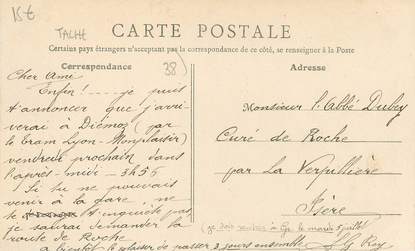 15€
TACHE
CARTE POSTALE
Certains pays étrangers n'acceptant pas la correspondance de ce côté, se renseigner à la Poste
Correspondance
38)
Adresse
Cher Ami
Enfin! ..... je puis
t'annoncer que j'arri-
verai à Diémoz (par
le tram Lyon-Monplaisir)
vendredi prochain dans
l'après-midi - 3h56
Si tu ne pouvais
venir à la gare ne
t'inquiète pas
je saurai demander la
route de Roche
le plaisir de passer 2 jours ensemble
Monsieur l'Abbé Dubey
Curé de Roche
par La Verpillière
Isère